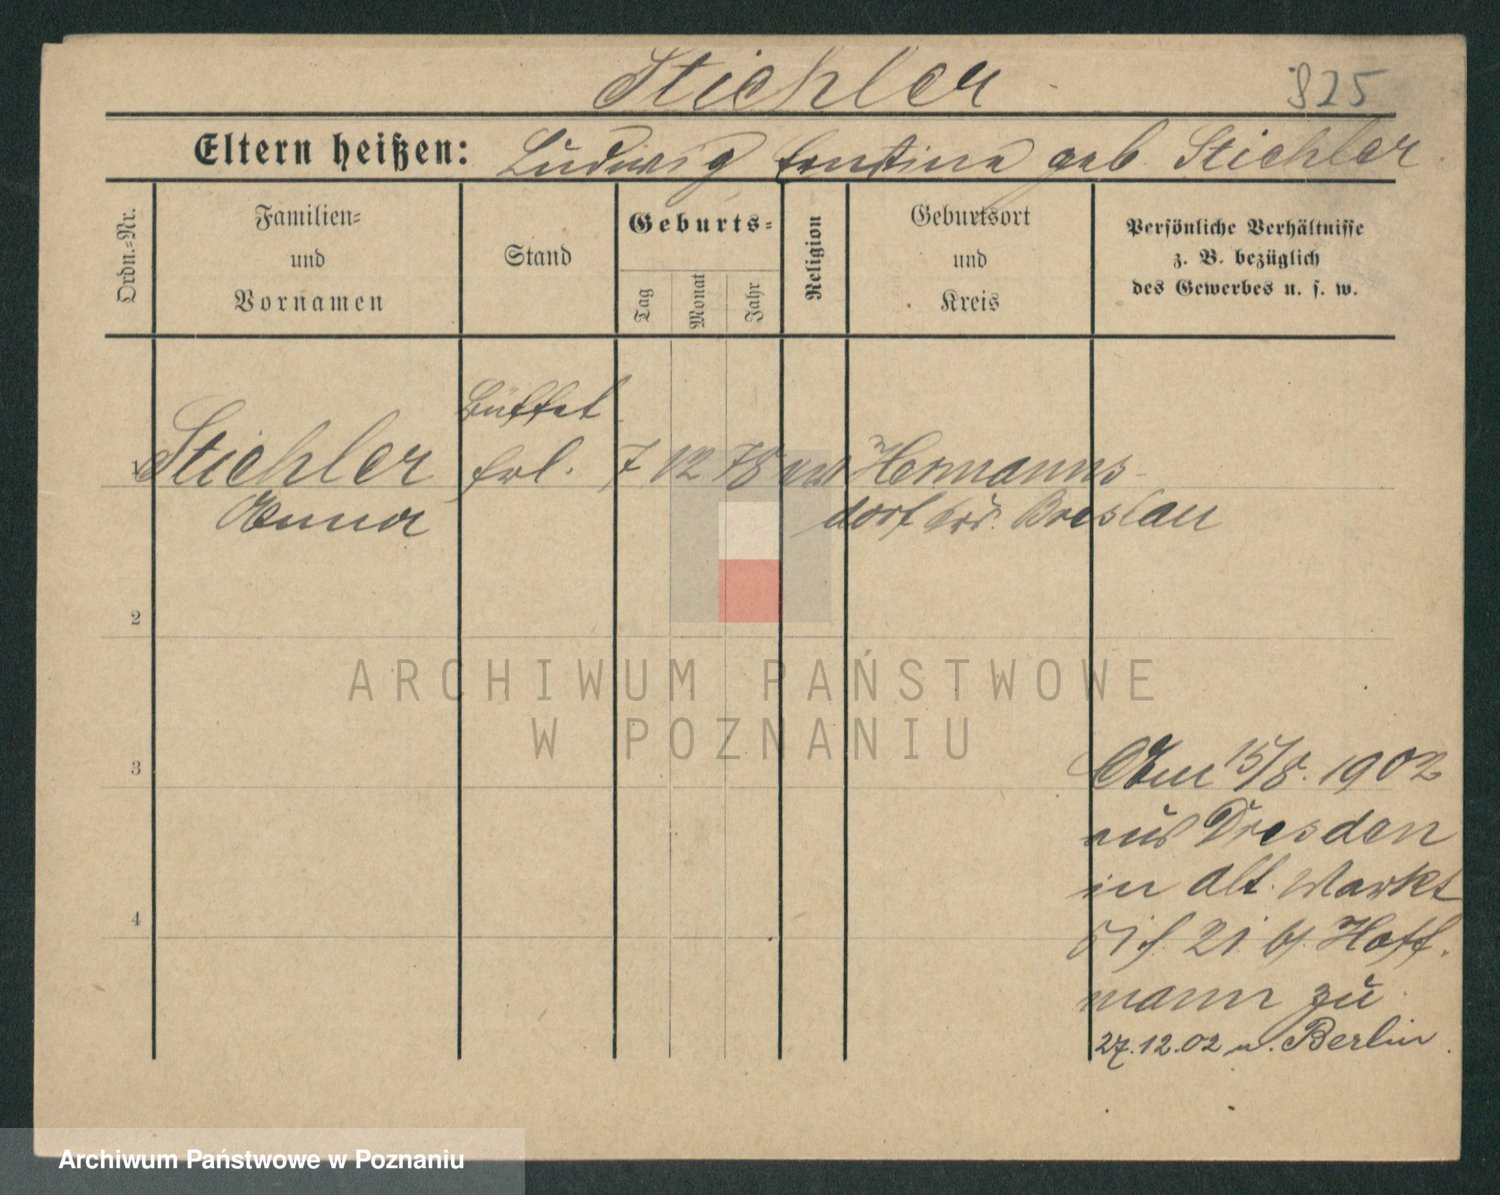 Stichler
825
Eltern heißen: Ludwig Ernstine geb. Stichler
Ordn.-Nr.
Familien-
und
Vornamen
Stand
Geburts-
Tag
Monat
Jahr
Religion
Geburtsort
und
Kreis
Persönliche Verhältnisse
z. B. bezüglich
des Gewerbes u. s. w.
Büffet
1 Stichler Frl. 7 12 78 Hermanns-
Anna dorf Krs. Breslau
2
ARCHIWUM PAŃSTWOWE
W POZNANIU
3
Am 15/8. 1902
aus Dresden
in Alt. Markt
4
51 f. 21 b/. Hoff-
mann zu
27.12.02 n. Berlin
Archiwum Państwowe w Poznaniu